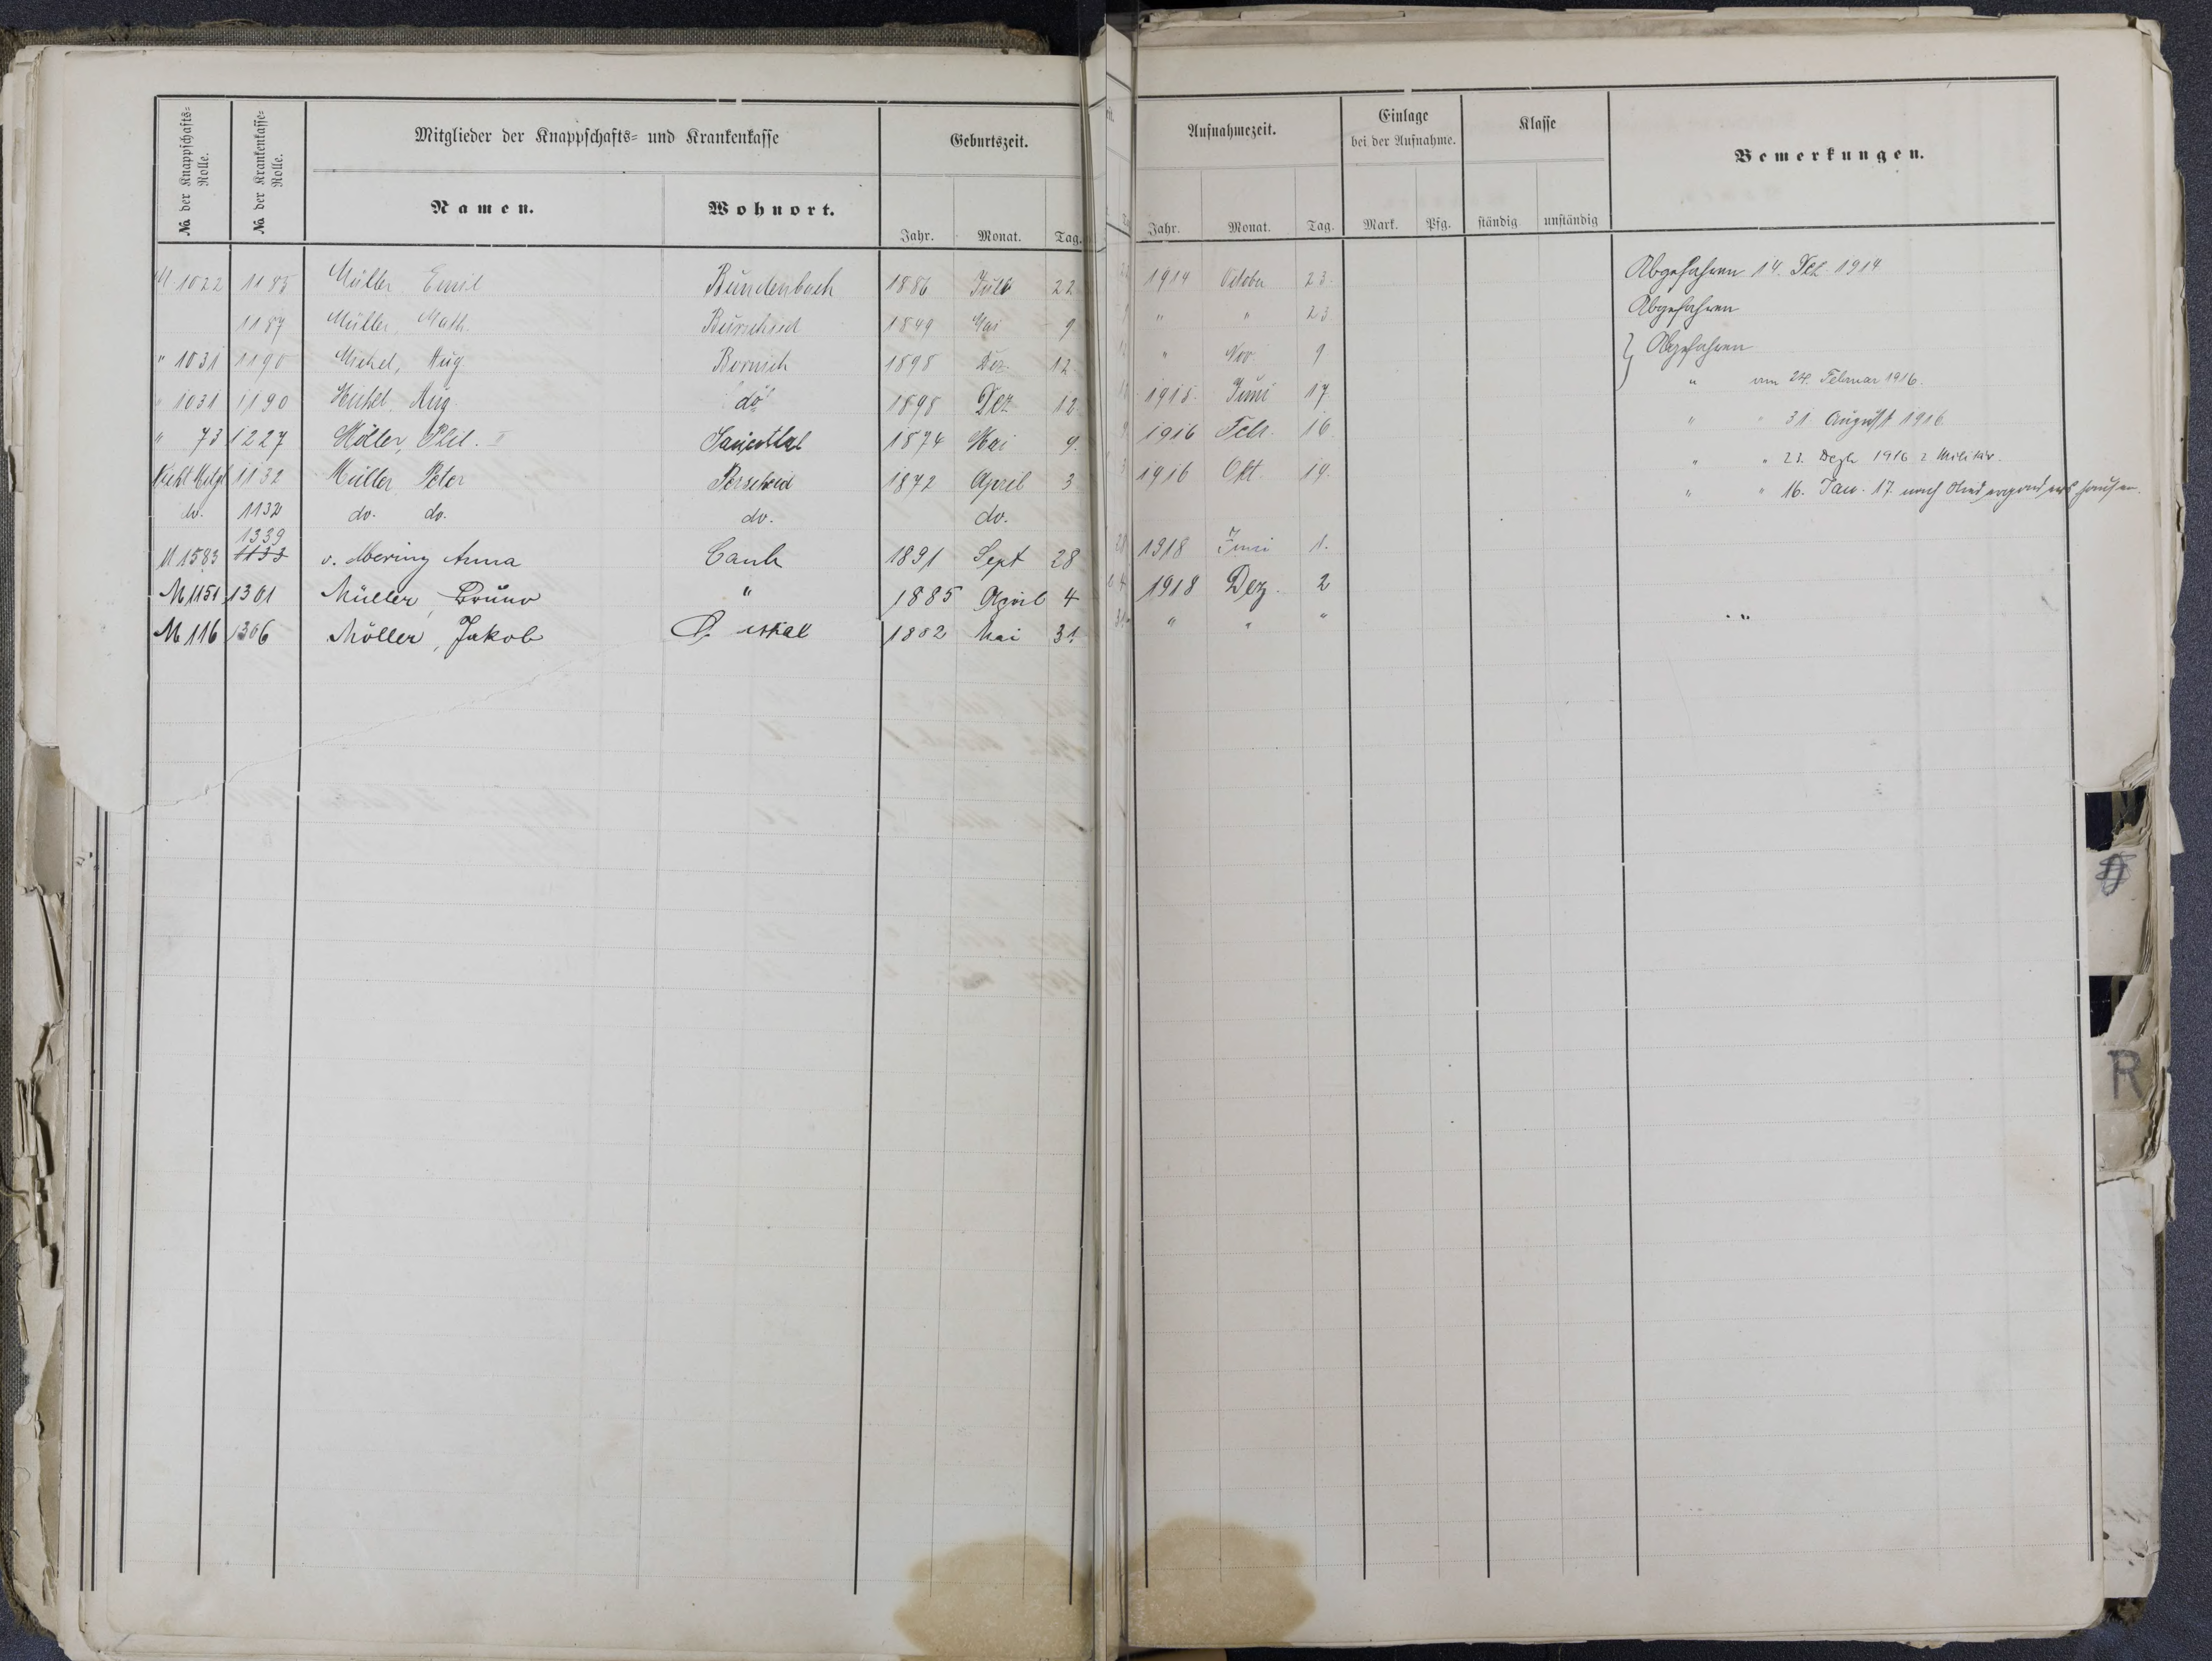 № der Knappschafts=Rolle. № der Krankenkasse=Rolle. Mitglieder der Knappschafts= und Krankenkasse Geburtszeit. Aufnahmezeit. Einlage bei der Aufnahme. Klasse Bemerkungen.
Namen. Wohnort. Jahr. Monat. Tag. Jahr. Monat. Tag. Mark. Pfg. ständig unständig
M 1022 1185 Müller Emil Bundenbach 1886 Juli 22 1914 October 23. Abgefahren 14. Dez 1914
1187 Müller, Math. 1849 Mai 9 " " 23 Abgefahren
" 1031 1190 Michel, Aug. Bornich 1898 Dez. 12 " Nov. 9 Abgefahren
" 1031 1190 Michel, Aug. do 1898 Dez 12. 1915 Juni 17 " am 24. Februar 1916.
" 73 1227 Müller, Phil. II Sauerthal 1874 Mai 9. 1916 Febr. 16 " " 31 August 1916
Nicht Mitgl 1132 Müller Peter Perscheid 1872 April 3 1916 Okt. 14. " " 23. Dezb 1916 z Militär.
do. 1132 do. do. do. do. " " 16. Jan. 17 nach
M 1583 1339 1133 v. Mering Anna Caub 1891 Sept 28 1918 Juni 1.
M 1151 1301 Müller, Bruno " 1885 April 4 1918 Dez. 2
M 116 1306 Möller, Jakob 1882 Mai 31. " " "
R